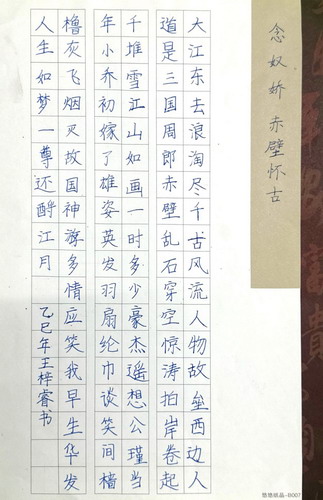 念奴娇 赤壁怀古
大江东去浪淘尽千古风流人物故垒西边人
道是三国周郎赤壁乱石穿空惊涛拍岸卷起
千堆雪江山如画一时多少豪杰遥想公瑾当
年小乔初嫁了雄姿英发羽扇纶巾谈笑间樯
橹灰飞烟灭故国神游多情应笑我早生华发
人生如梦一尊还酹江月 乙巳年王梓睿书